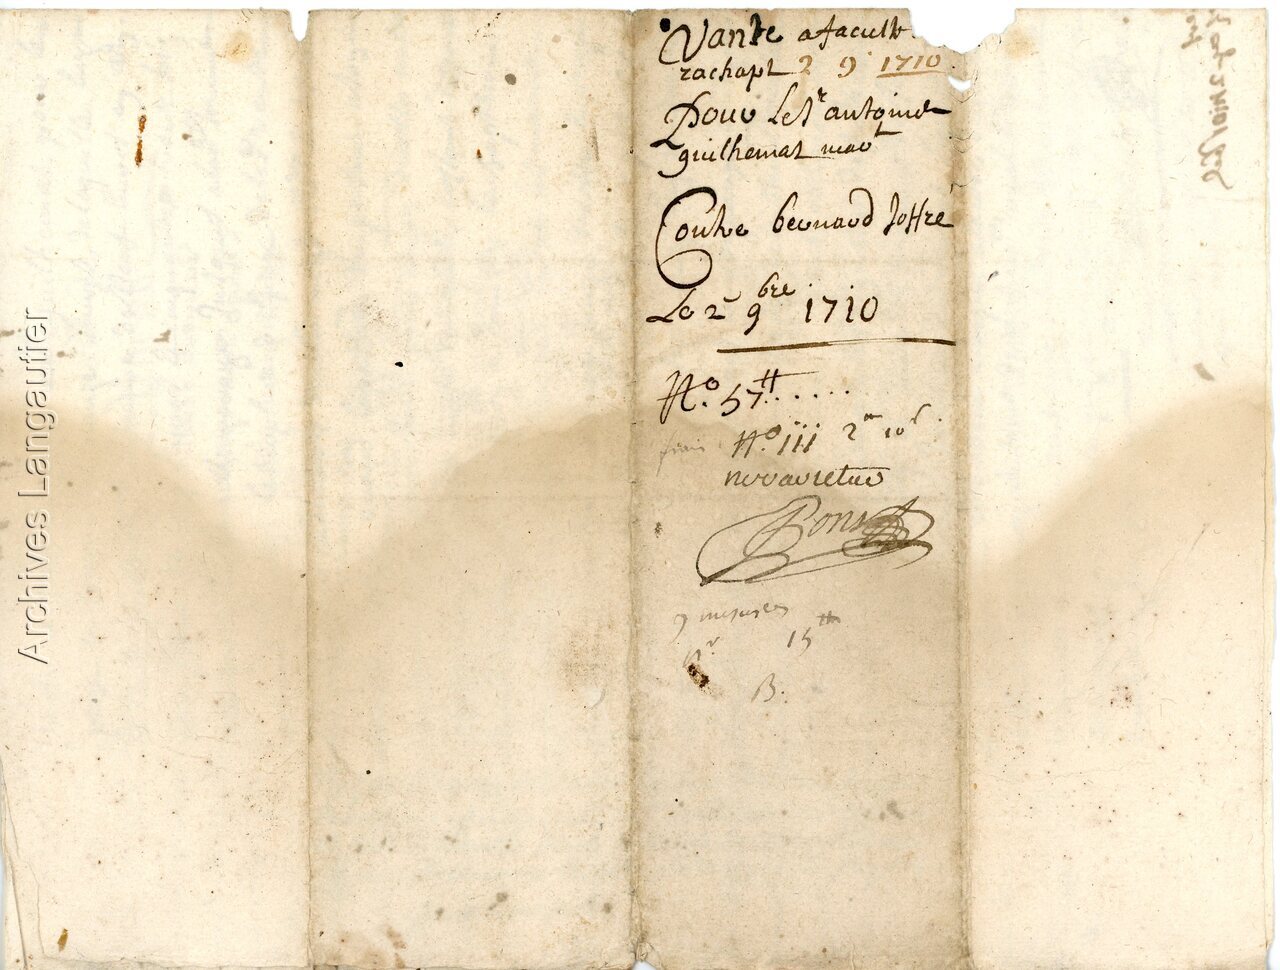 Vante a faculte
rachapt 2 9 1710
Pour le Sr antoine
guilhemat
Contre bernard Joffre
Le 2 9bre 1710
No. 57 ₶ .....
frais No. iii 2 10s
Pons
9 mesures
15 ₶
B.
Archives Langautier